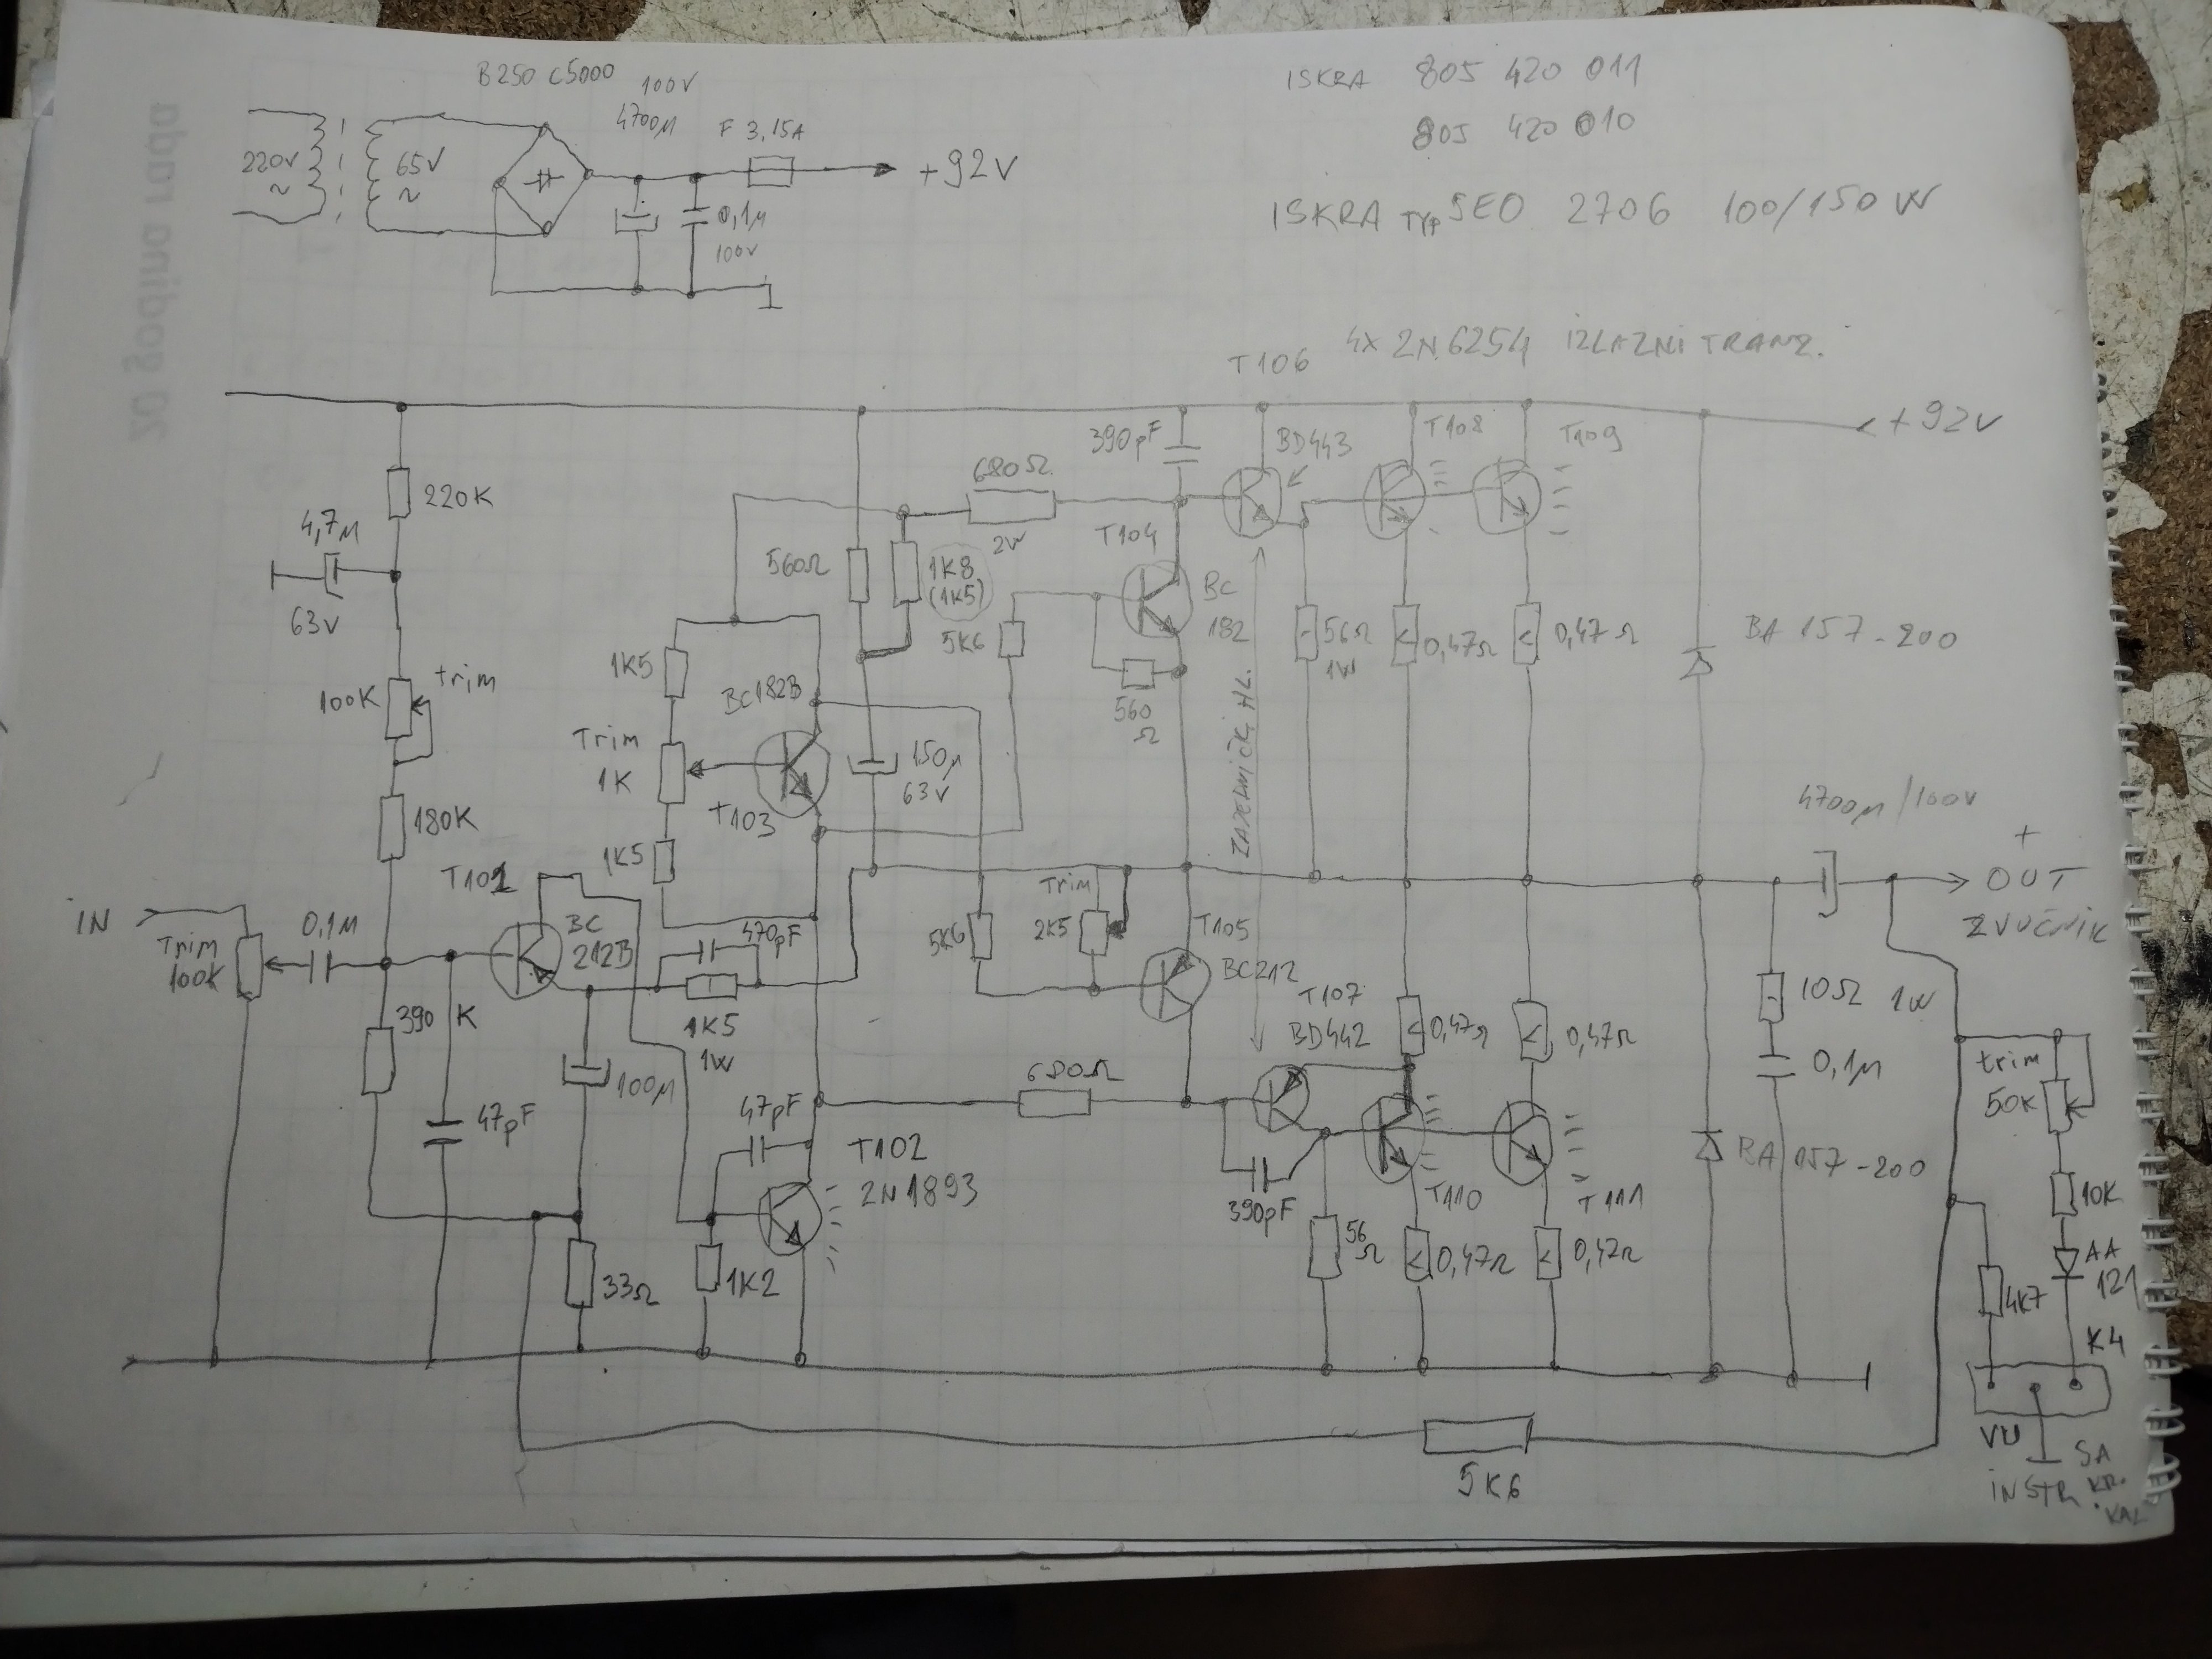 B250 C5000
100V
4700µ
F 3,15A
220V
~
65V
~
+92V
0,1µ
100V
ISKRA 805 420 011
805 420 010
ISKRA TYP SEO 2706 100/150 W
T106 4x 2N 6254 IZLAZNI TRANZ.
+92V
390pF
BD443
T108
T109
220K
4,7µ
63V
680Ω
2W
T104
560Ω
1K8
(1K5)
5K6
BC
182
56Ω
1W
0,47Ω
0,47Ω
BA 157-200
100K
trim
1K5
BC182B
560
Ω
Trim
1K
T103
150µ
63V
ZAJEDNIČKI HL.
180K
1K5
4700µ/100V
+
OUT
ZVUČNIK
T101
IN
Trim
100K
0,1µ
BC
212B
470pF
5K6
Trim
2K5
T105
BC212
T107
BD442
390 K
1K5
1W
0,47Ω
0,47Ω
10Ω 1W
0,1µ
trim
50K
100µ
680Ω
47pF
47pF
T102
2N1893
390pF
T110
T111
BA 157-200
10K
AA
121
33Ω
1K2
56
Ω
0,47Ω
0,47Ω
4K7
K4
5K6
VU
INSTR
SA
KR.
KAL
20 godina rada